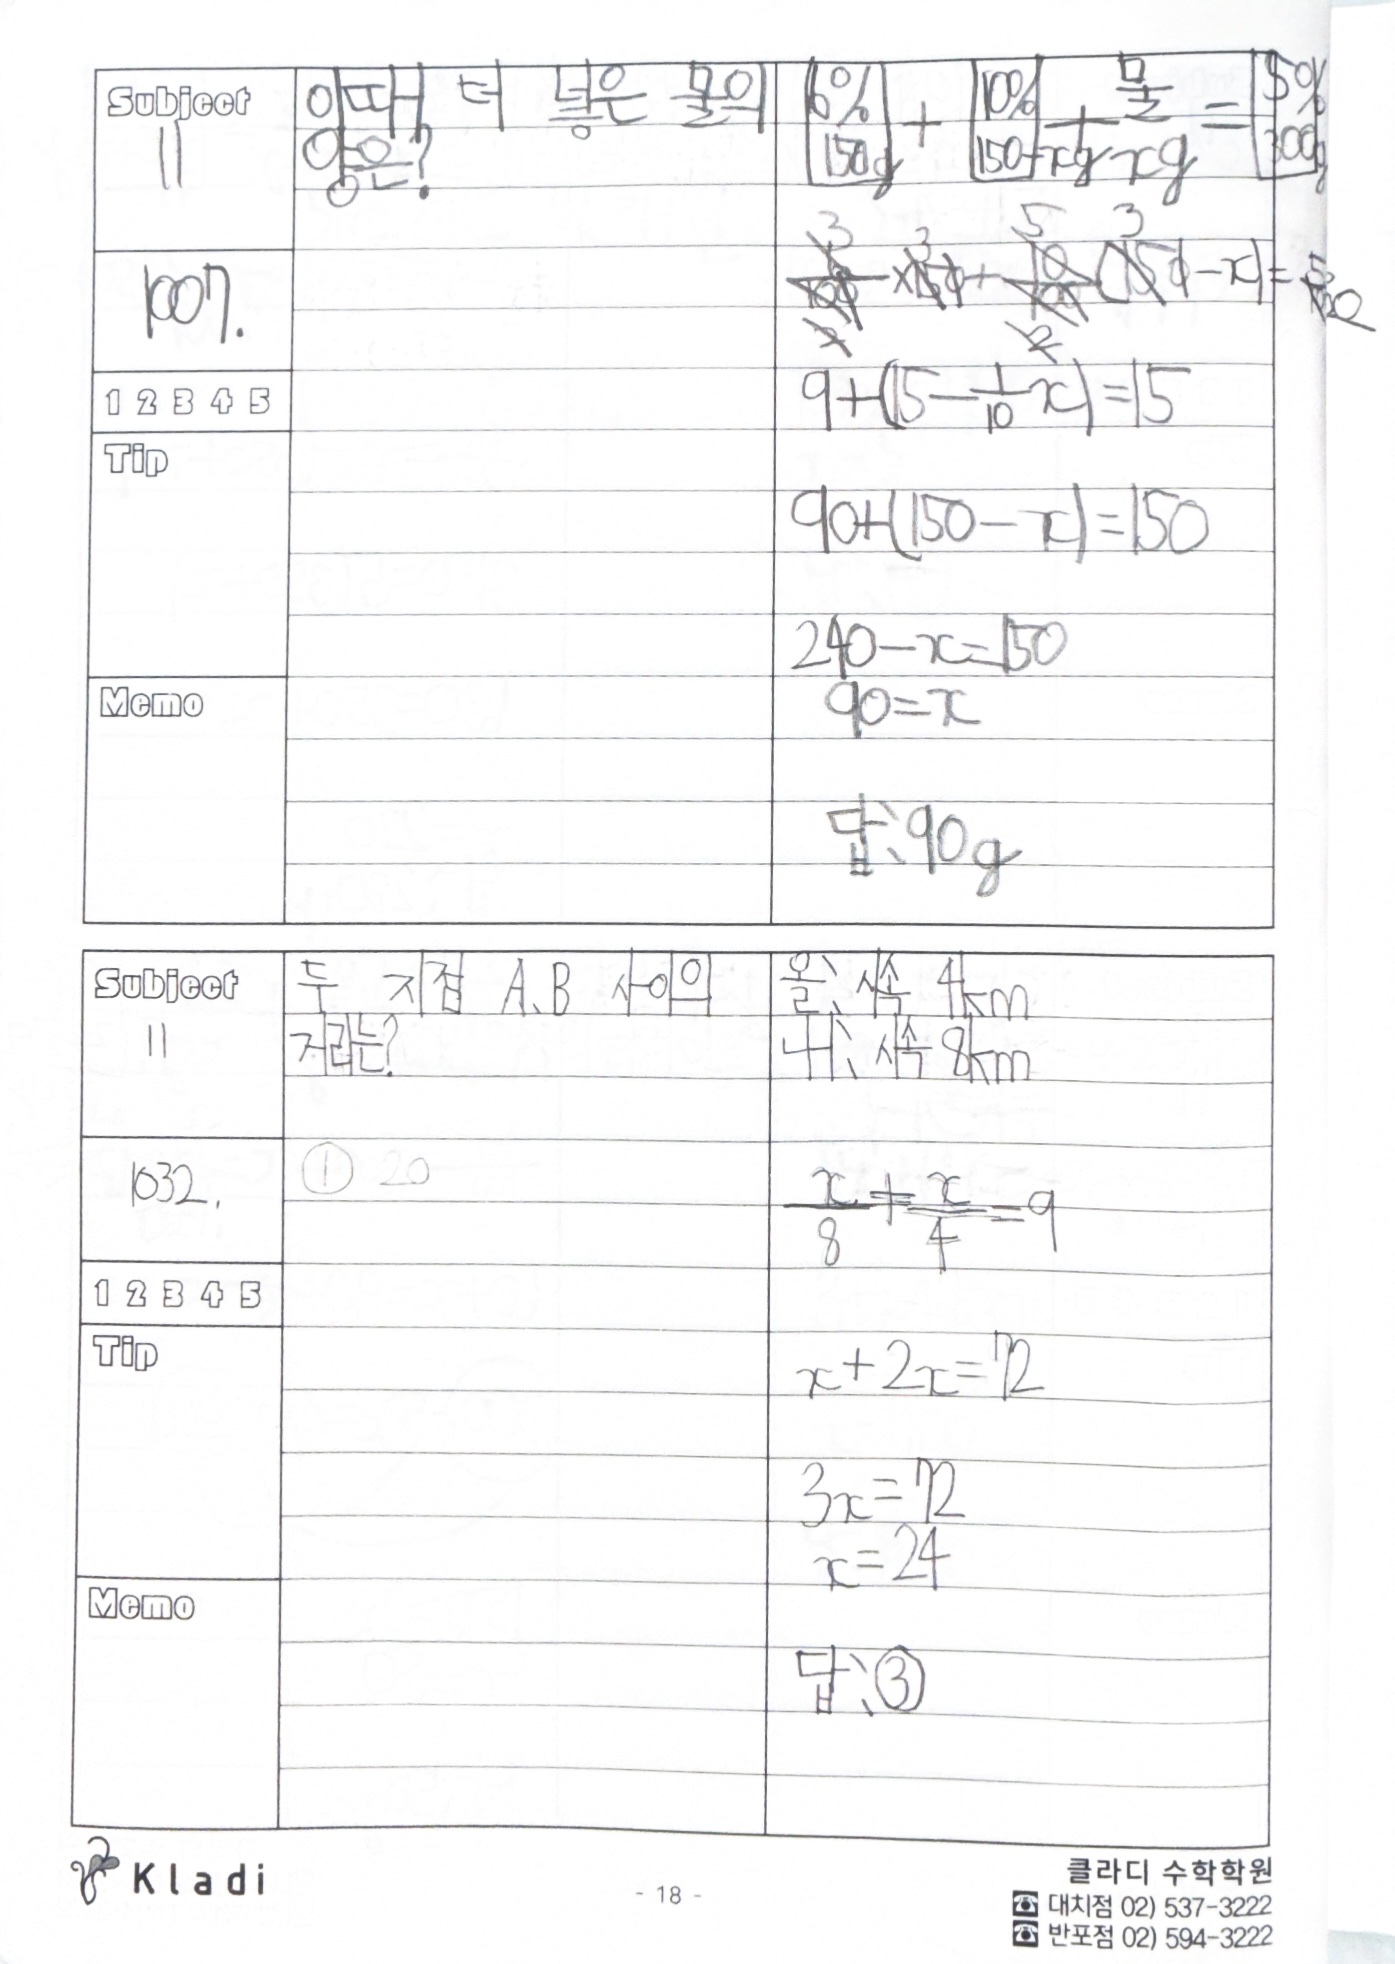 Subject
11
이때 더 넣은 물의
양은?
6%
150g
+
10%
150-xg
+
물
xg
=
5%
300g
1007.
3 3 5 3
6/100 × 150 + 10/100 (150 - x) = 5/100
2 2
1 2 3 4 5
9+(15-1/10x)=15
Tip
90+(150-x)=150
240-x=150
Memo
90=x
답: 90g
Subject
11
두 지점 A, B 사이의
거리는?
올: 시속 4km
내: 시속 8km
1032.
① 20
x/8 + x/4 = 9
1 2 3 4 5
Tip
x+2x=72
3x=72
x=24
Memo
답: ③
Kladi
- 18 -
클라디 수학학원
대치점 02) 537-3222
반포점 02) 594-3222